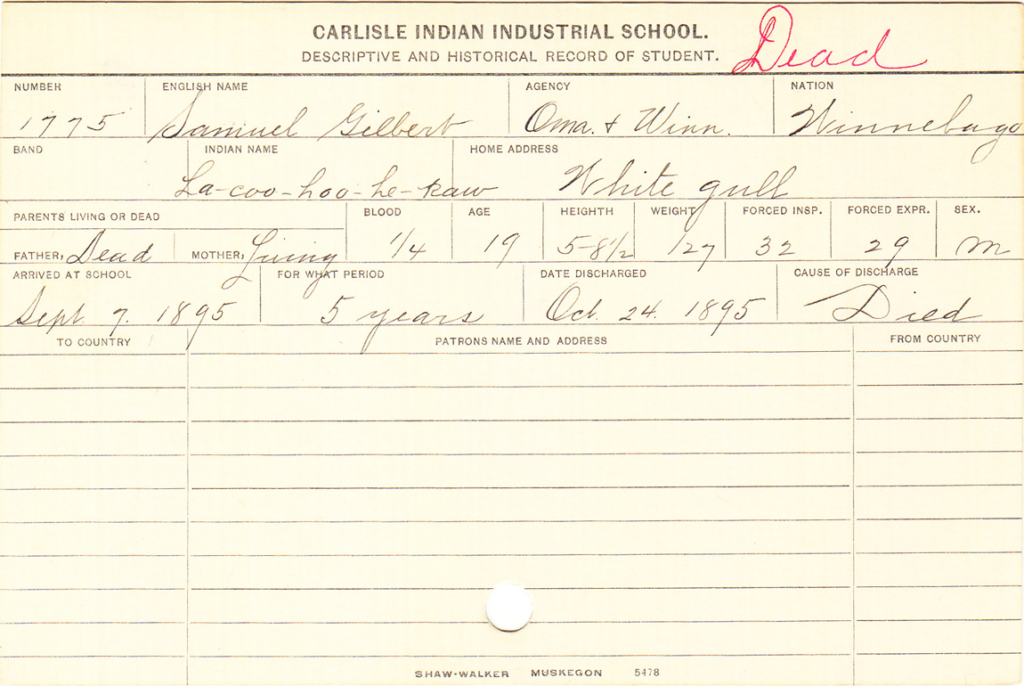 CARLISLE INDIAN INDUSTRIAL SCHOOL.
DESCRIPTIVE AND HISTORICAL RECORD OF STUDENT. Dead
NUMBER ENGLISH NAME AGENCY NATION
1775 Samuel Gilbert Oma. & Winn. Winnebago
BAND INDIAN NAME HOME ADDRESS
La-coo-hoo-he-kaw White gull
PARENTS LIVING OR DEAD BLOOD AGE HEIGHTH WEIGHT FORCED INSP. FORCED EXPR. SEX.
FATHER, Dead MOTHER, Living 1/4 19 5-8 1/2 127 32 29 M
ARRIVED AT SCHOOL FOR WHAT PERIOD DATE DISCHARGED CAUSE OF DISCHARGE
Sept 7. 1895 5 years Oct. 24. 1895 Died
TO COUNTRY PATRONS NAME AND ADDRESS FROM COUNTRY
SHAW-WALKER MUSKEGON 5478